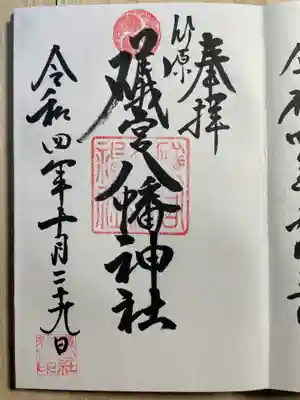 奉拝
竹原
礒宮八幡神社
令和四年十月二十九日